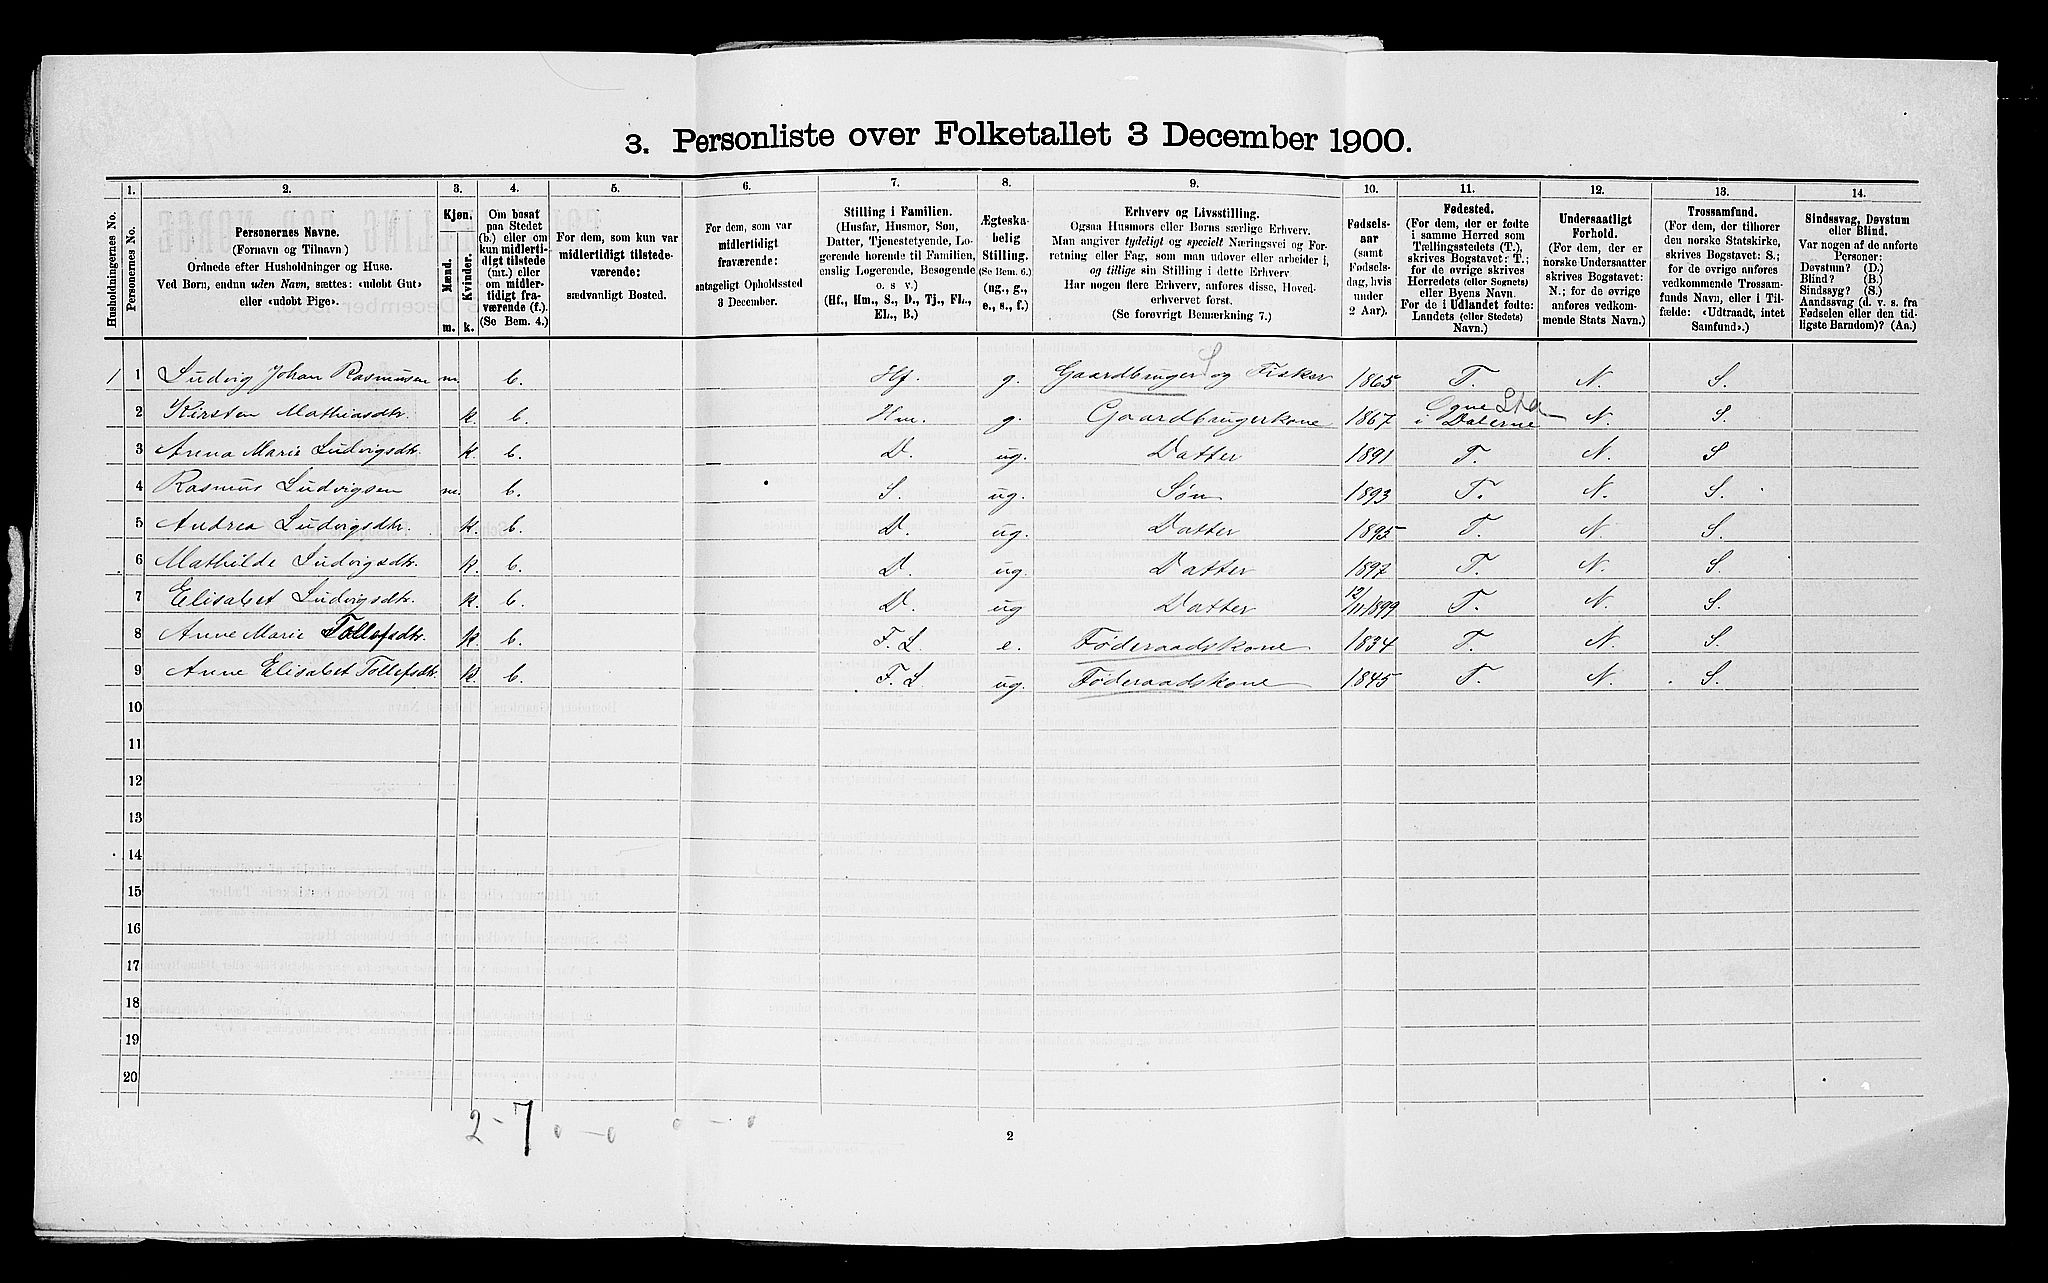 3. Personliste over Folketallet 3 December 1900.
Husholdningernes No.
1. Personernes No.
2. Personernes Navne. (Fornavn og Tilnavn) Ordnede efter Husholdninger og Huse. Ved Børn, endnu uden Navn, sættes: «udøbt Gut» eller «udøbt Pige».
3. Kjøn. Mænd. Kvinder. m. k.
4. Om bosat paa Stedet (b.) eller om kun midlertidigt tilstede (mt.) eller om midlertidigt fraværende (f.). (Se Bem. 4.)
5. For dem, som kun var midlertidigt tilstedeværende: sædvanligt Bosted.
6. For dem, som var midlertidigt fraværende: antageligt Opholdssted 3 December.
7. Stilling i Familien. (Husfar, Husmor, Søn, Datter, Tjenestetyende, Logerende hørende til Familien, enslig Logerende, Besøgende o. s v.) (Hf., Hm., S., D., Tj., FL., EL., B.)
8. Ægteskabelig Stilling. (Se Bem. 6.) (ug., g., e., s., f.)
9. Erhverv og Livsstilling. Ogsaa Husmors eller Børns særlige Erhverv. Man angiver tydeligt og specielt Næringsvei og Forretning eller Fag, som man udøver eller arbeider i, og tillige sin Stilling i dette Erhverv Har nogen flere Erhverv, anføres disse, Hovederhvervet først. (Se forøvrigt Bemærkning 7.)
10. Fødselsaar (samt Fødselsdag, hvis under 2 Aar).
11. Fødested. (For dem, der er fødte i samme Herred som Tællingsstedets (T.), skrives Bogstavet: T.; for de øvrige skrives Herredets (eller Sognets) eller Byens Navn. For de i Udlandet fødte: Landets (eller Stedets) Navn.)
12. Undersaatligt Forhold. (For dem, der er norske Undersaatter skrives Bogstavet: N.; for de øvrige anføres vedkommende Stats Navn.)
13. Trossamfund. (For dem, der tilhører den norske Statskirke, skrives Bogstavet: S.; for de øvrige anføres vedkommende Trossamfunds Navn, eller i Tilfælde: «Udtraadt, intet Samfund».)
14. Sindssvag, Døvstum eller Blind. Var nogen af de anførte Personer: Døvstum? (D.) Blind? (B.) Sindssyg? (S.) Aandssvag (d. v. s. fra Fødselen eller den tidligste Barndom)? (Aa.)
1 1 Ludvig Johan Rasmusen m. b. Hf. g. Gaardbruger og Fisker 1865 T. N. S.
2 Kirsten Mathiasdtr. k. b. Hm. g. Gaardbrugerkone 1867 Ogne i Dalerne N. S.
3 Anna Marie Ludvigsdtr. k. b. D. ug. Datter 1891 T. N. S
4 Rasmus Ludvigsen m. b. S. ug. Søn 1893 T. N. S.
5 Andrea Ludvigsdtr. k. b. D. ug. Datter 1895 T. N. S.
6 Mathilde Ludvigsdtr. k. b. D. ug. Datter 1897 T. N. S.
7 Elisabet Ludvigsdtr. k. b. D. ug Datter 12/11 1899 T. N. S.
8 Anne Marie Tollefsdtr. k. b. F. L e. Føderaadskone 1834 T. N. S.
9 Anne Elisabet Tollefsdtr. k. b. F. L ug. Føderaadskone 1845 T. N. S.
10
11
12
13
14
15
16
17
18
19
20
2-7 0-0 0-0
2